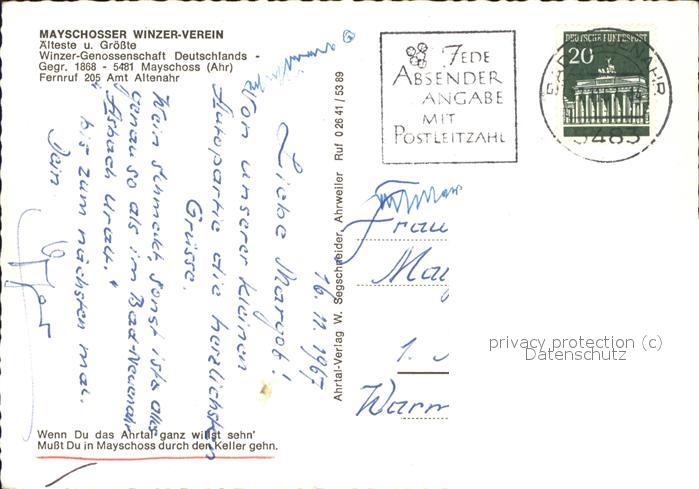 MAYSCHOSSER WINZER-VEREIN
Älteste u. Größte
Winzer-Genossenschaft Deutschlands -
Gegr. 1868 - 5481 Mayschoss (Ahr)
Fernruf 205 Amt Altenahr
16.11.1967
Liebe Margot!
Von unserer kleinen
Autopartie die herzlichsten
Grüsse.
Wein schmeckt, sonst ist alles
genau so als im Bad-Neuenahr
"Asbach Uralt."
bis zum nächsten mal.
Dein
Wenn Du das Ahrtal ganz willst sehn'
Mußt Du in Mayschoss durch den Keller gehn.
Ahrtal-Verlag W. Segschneider, Ahrweiler Ruf 0 26 41 / 53 89
JEDE
ABSENDER
ANGABE
MIT
POSTLEITZAHL
DEUTSCHE BUNDESPOST
20
5483
Frau
1.
privacy protection (c)
Datenschutz